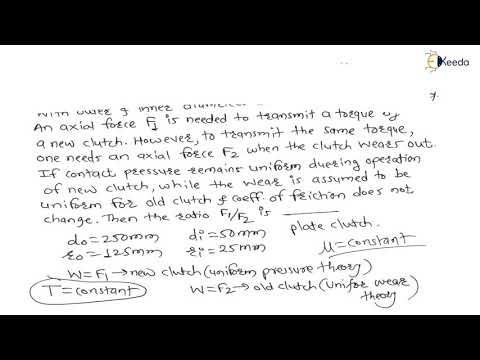 Ekeeda
with outer & inner diameter
An axial force F1 is needed to transmit a torque by
a new clutch. However, to transmit the same torque,
one needs an axial force F2 when the clutch wears out.
If contact pressure remains uniform duering operation
of new clutch, while the wear is assumed to be
uniform for old clutch & coeff. of friction does not
change. Then the ratio F1/F2 is ______
plate clutch.
do=250mm di=50mm
ro=125mm ri=25mm
μ=constant
W=F1→new clutch (uniform pressure theory)
T=constant
W=F2→old clutch (unifor wear theory)